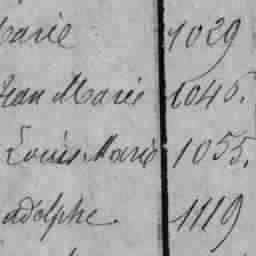 Marie 1029
Jean Marie 1046.
Louis Marie 1055.
adolphe. 1119